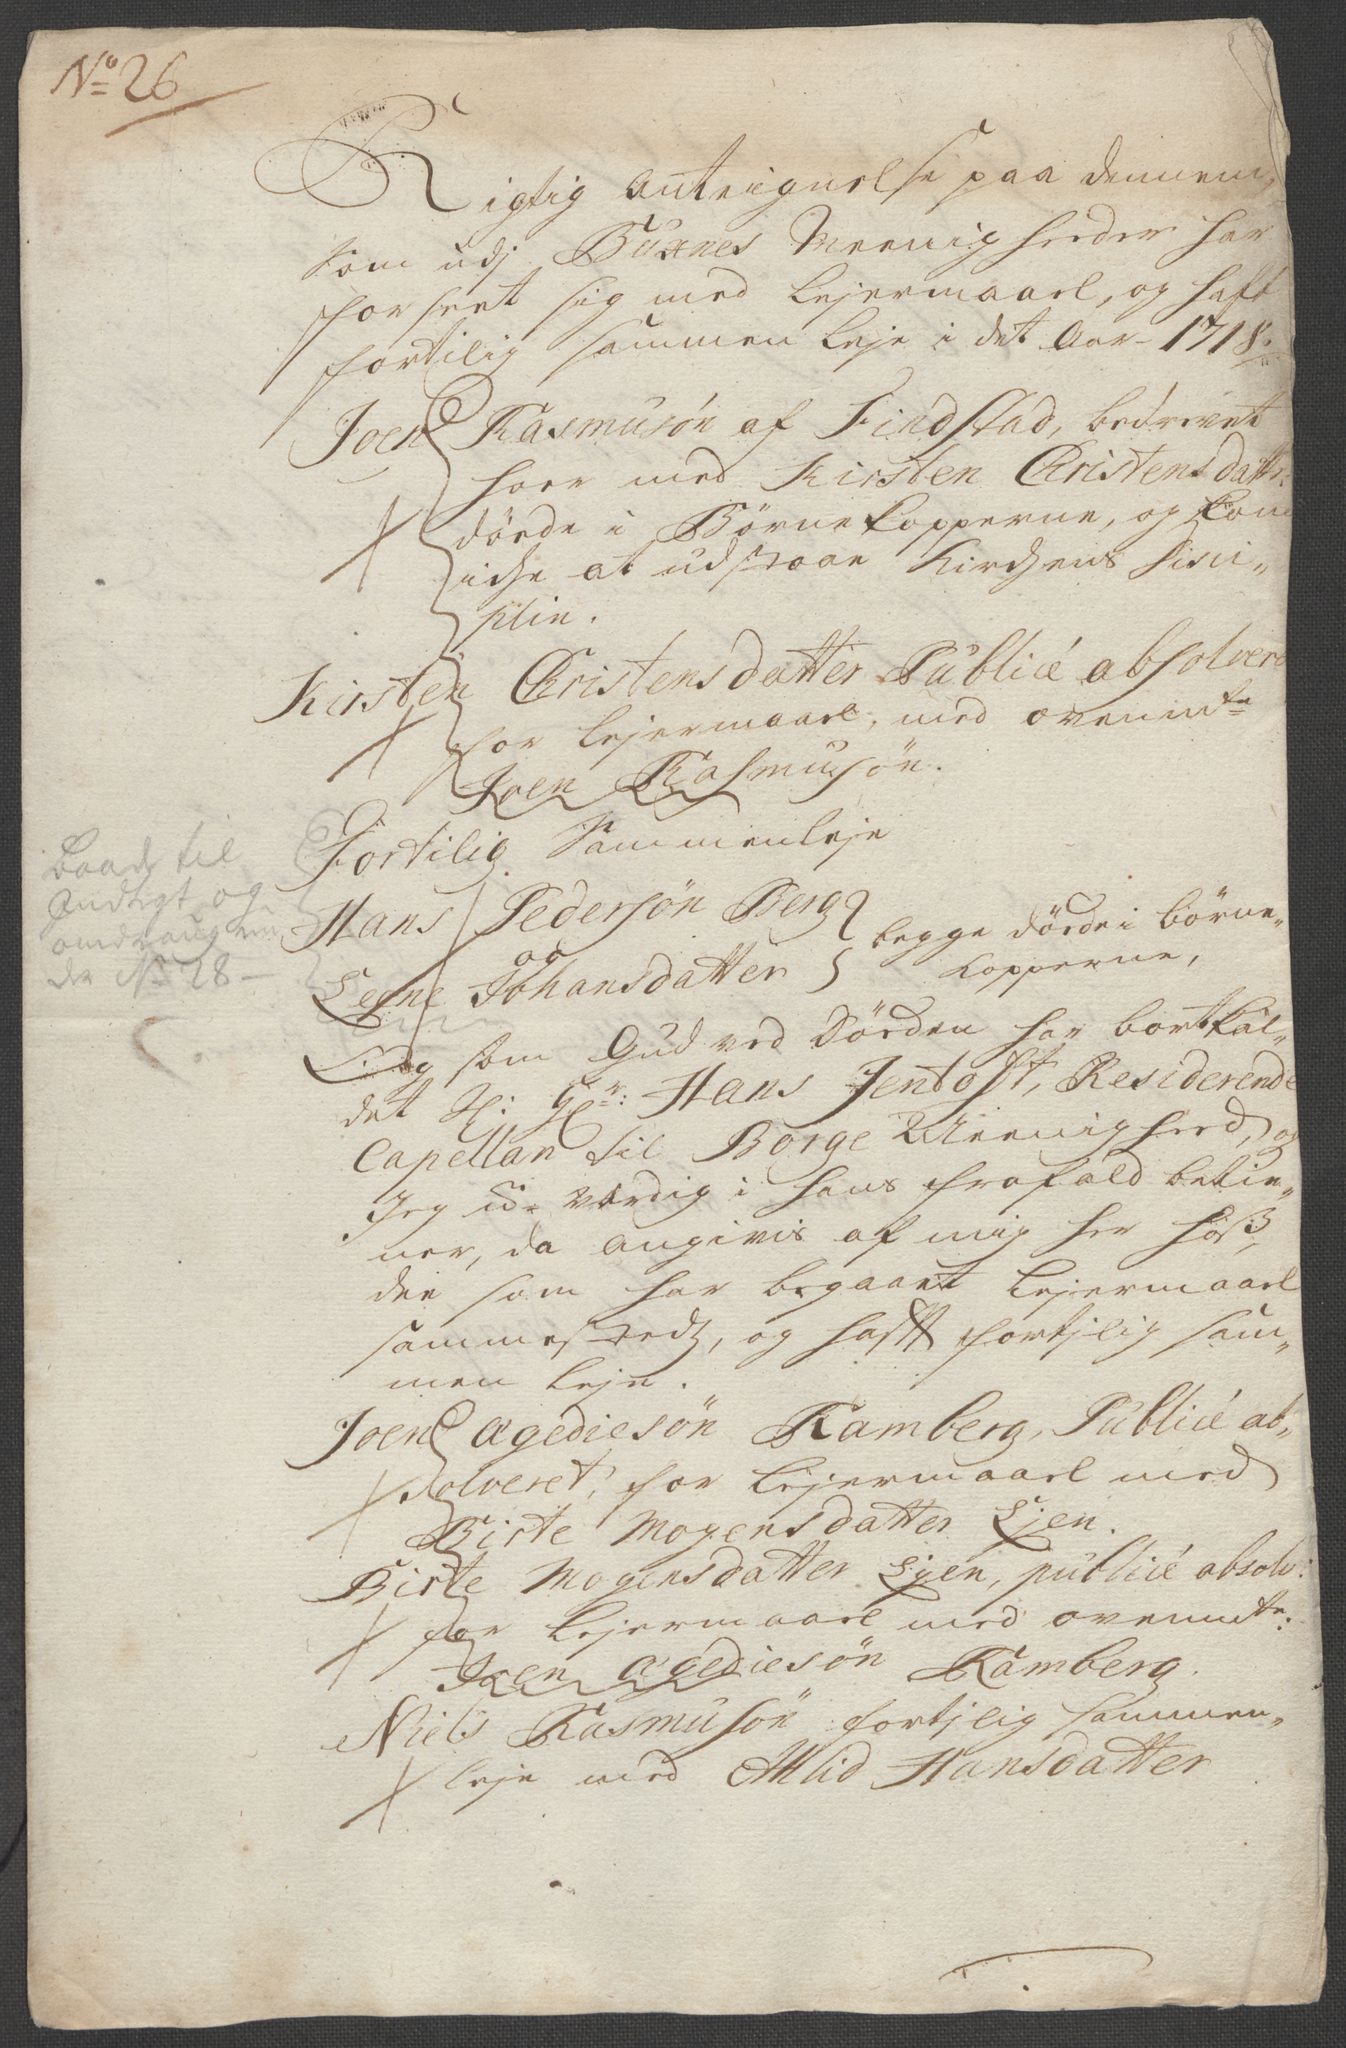 No 26
Rigtig Anteignelse paa dennem,
som udj Buxnes Meenigheeder har
forseet sig med Lejermaael, og hafft
fortilig sammen Leje i det Aar 1718.
Joen Rasmusøn af Findstad, bedrevet
hoer med Kirsten Christensdatt:
døede i Børnekopperne, og kom
iche at udstaae Kirchens Disci-
plin.
Kirsten Christensdatter Publicé absolveret
for Lejermaael, med ovennte
Joen Rasmusøn.
Fortilig Sammenleje
Hans Pedersøn Berg
og
begge døde i børne-
Leene Johansdatter
kopperne,
Og som Gud ved Døden har bortkal-
det S: Hr: Hans Jentoft, Residerende
Capellan til Borge Meenigheed, og
Jeg u-værdig i hans frafald betie-
ner, da angivis af mig her hoss,
dee som har begaaet Lejermaael
sammestedz, og hafft fortjlig sam-
men Leje.
Joen Agediesøn Ramberg, Publicé ab-
solveret, for Lejermaael med
Birte Mogensdatter Ljen.
Birte Mogensdatter Ljen, publicé absolv:
for Lejermaael med ovennte:
Joen Agediesøn Ramberg.
Niels Rasmusøn fortjlig sammen-
leje med Allid Hansdatter
til
og
No 28